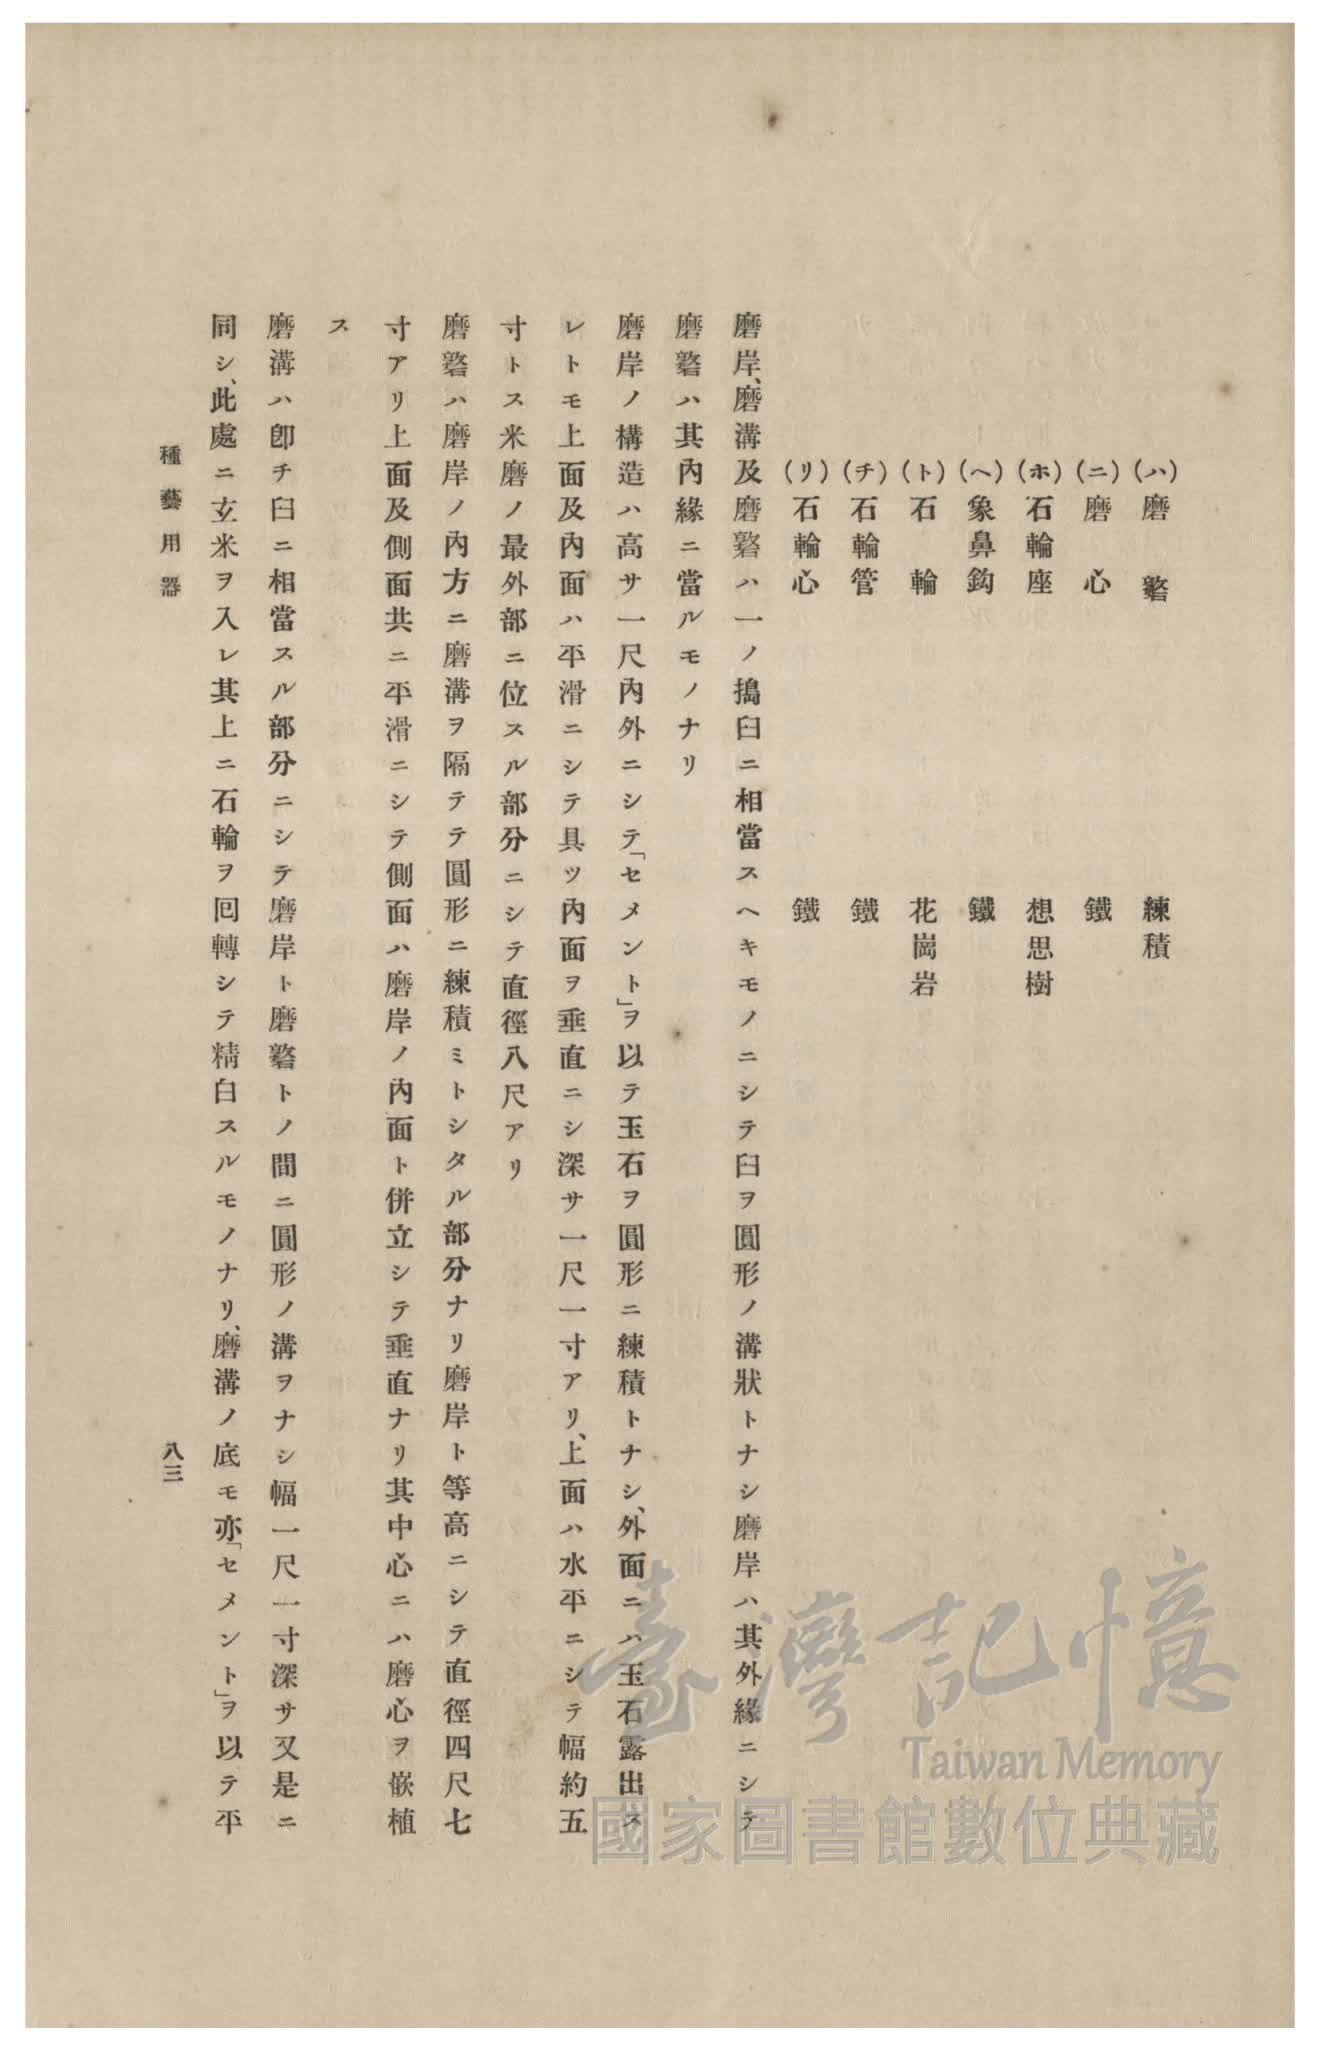 (ハ)磨礐 練積
(ニ)磨心 鐵
(ホ)石輪座 想思樹
(ヘ)象鼻鈎 鐵
(ト)石輪 花崗岩
(チ)石輪管 鐵
(リ)石輪心 鐵
磨岸、磨溝及磨礐ハ一ノ搗臼ニ相當スヘキモノニシテ臼ヲ圓形ノ溝狀トナシ磨岸ハ其外緣ニシテ
磨礐ハ其內緣ニ當ルモノナリ
磨岸ノ構造ハ高サ一尺內外ニシテ「セメント」ヲ以テ玉石ヲ圓形ニ練積トナシ、外面ニハ玉石露出ス
レトモ上面及內面ハ平滑ニシテ具ツ內面ヲ垂直ニシ深サ一尺一寸アリ、上面ハ水平ニシテ幅約五
寸トス米磨ノ最外部ニ位スル部分ニシテ直徑八尺アリ
磨礐ハ磨岸ノ內方ニ磨溝ヲ隔テテ圓形ニ練積ミトシタル部分ナリ磨岸ト等高ニシテ直徑四尺七
寸アリ上面及側面共ニ平滑ニシテ側面ハ磨岸ノ內面ト併立シテ垂直ナリ其中心ニハ磨心ヲ嵌植
ス
磨溝ハ卽チ臼ニ相當スル部分ニシテ磨岸ト磨礐トノ間ニ圓形ノ溝ヲナシ幅一尺一寸深サ又是ニ
同シ、此處ニ玄米ヲ入レ其上ニ石輪ヲ囘轉シテ精白スルモノナリ、磨溝ノ底モ亦「セメント」ヲ以テ平
種藝用器
八三
臺灣記憶
Taiwan Memory
國家圖書館數位典藏